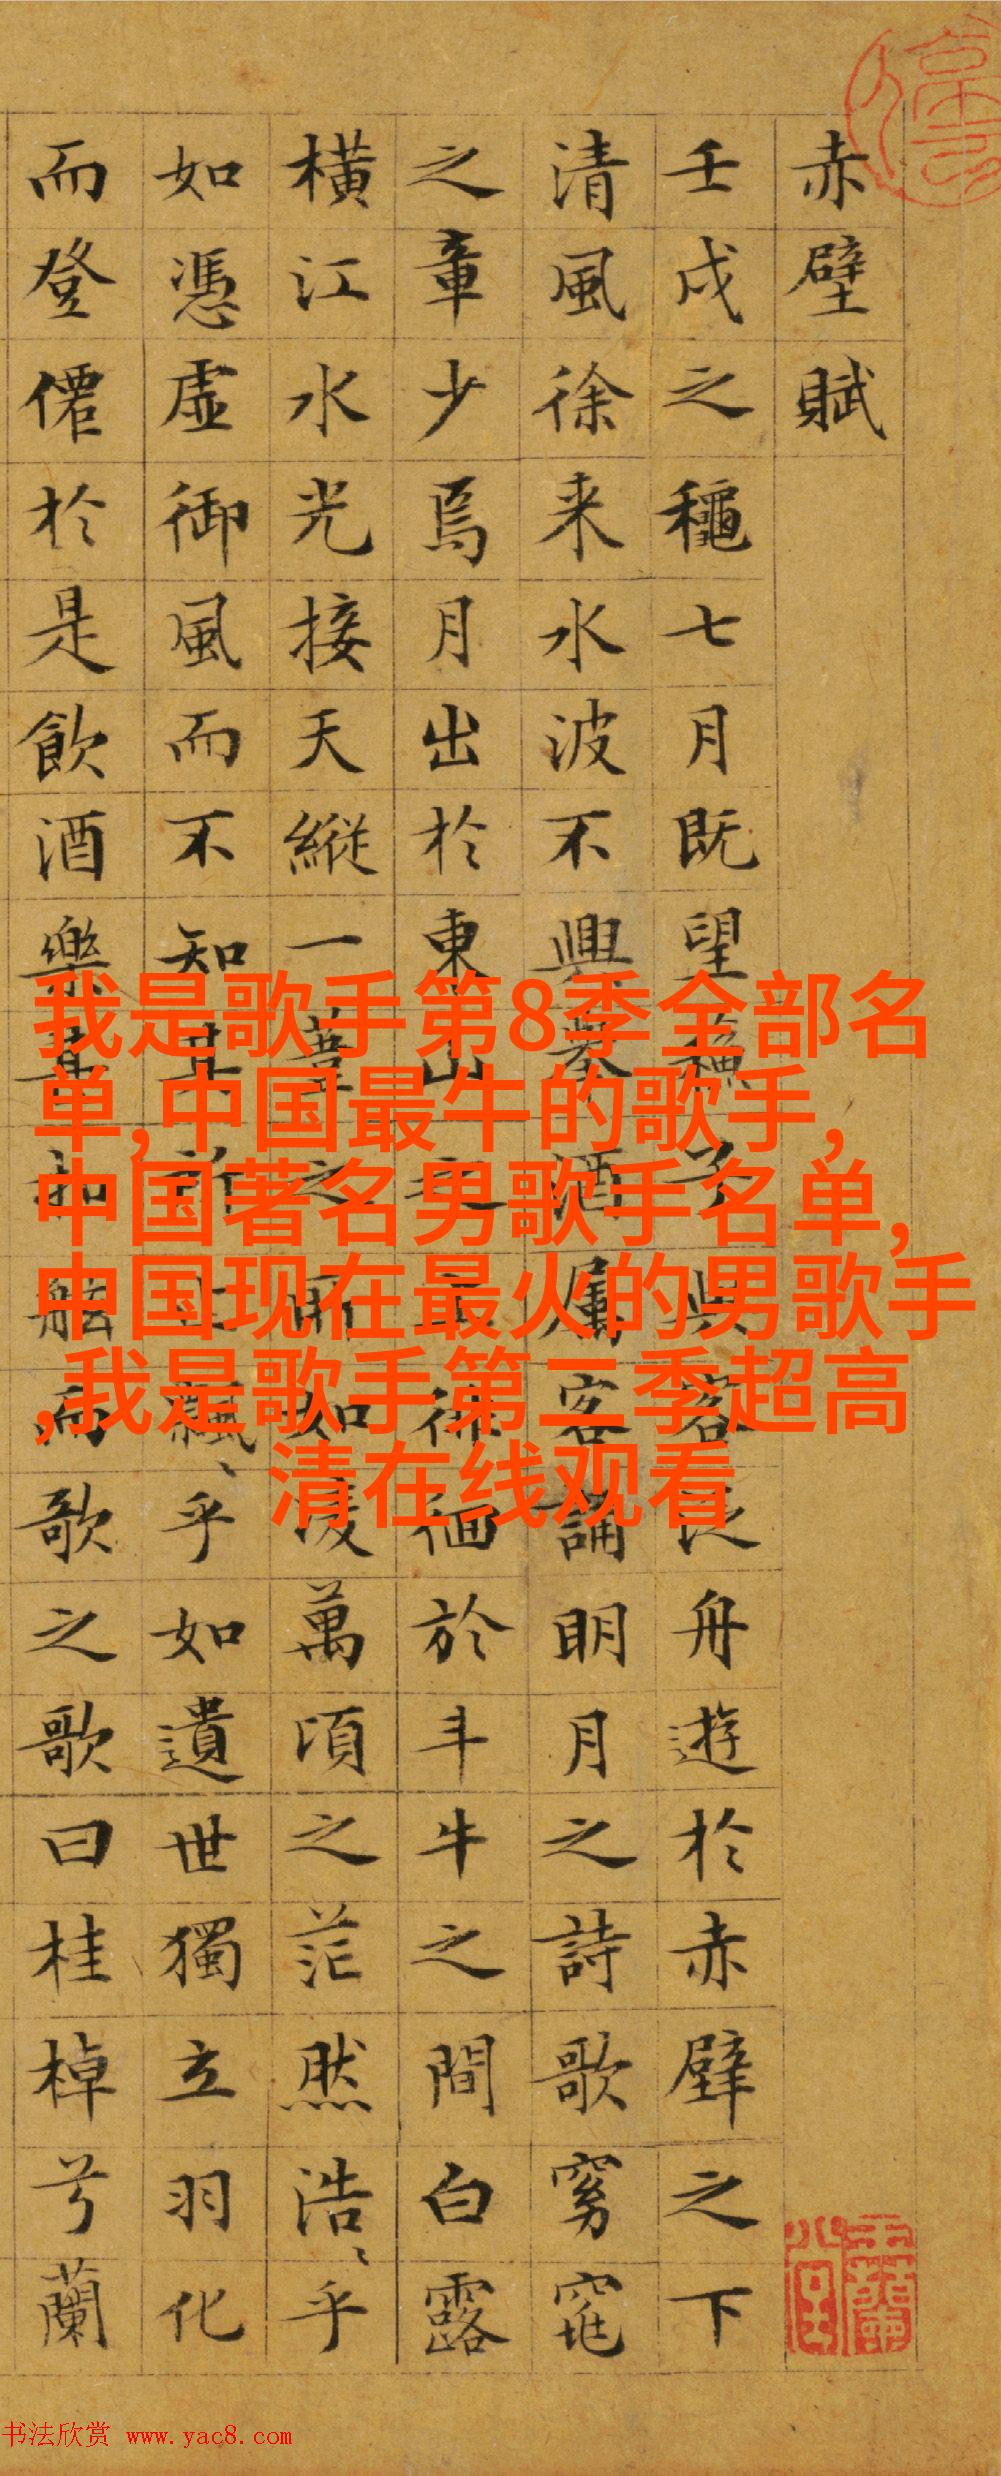 赤壁賦
壬戌之穐七月既望蘓子與客泛舟遊於赤壁之下
清風徐来水波不興舉酒屬客誦明月之詩歌窈窕
之章少焉月出於東山之上徘徊於斗牛之間白露
橫江水光接天縱一葦之所如凌萬頃之茫然浩〻乎
如憑虛御風而不知其所止飄〻乎如遺世獨立羽化
而登僊於是飲酒樂甚扣舷而歌之歌曰桂棹兮蘭
我是歌手第8季全部名
单,中国最牛的歌手,
中国著名男歌手名单,
中国现在最火的男歌手
,我是歌手第二季超高
清在线观看
书法欣赏 www.yac8.com